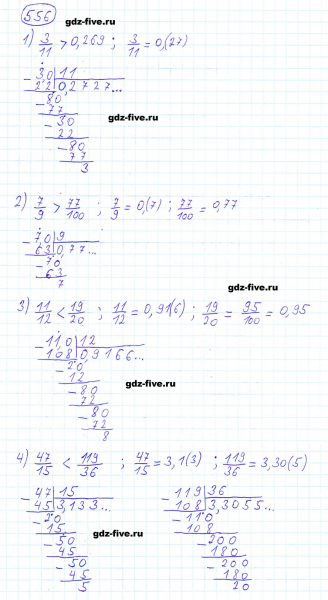 556
gdz-five.ru
gdz-five.ru
1) 3/11 > 0,269 ; 3/11 = 0,(27)
- 3,0 | 11
2 2 | 0,2727...
- 80
77
gdz-five.ru
- 30
22
- 80
77
3
2) 7/9 > 77/100 ; 7/9 = 0,(7) ; 77/100 = 0,77
- 7,0 | 9
6 3 | 0,77...
- 70
63
7
gdz-five.ru
3) 11/12 < 19/20 ; 11/12 = 0,91(6) ; 19/20 = 95/100 = 0,95
- 11,0 | 12
108 | 0,9166...
- 20
12
gdz-five.ru
- 80
72
- 80
72
8
gdz-five.ru
4) 47/15 < 119/36 ; 47/15 = 3,1(3) ; 119/36 = 3,30(5)
- 47 | 15 - 119 | 36
45 | 3,133... 108 | 3,3055...
- 20 - 110
15 108
gdz-five.ru
- 50 - 200
45 180
- 50 - 200
45 180
5 20